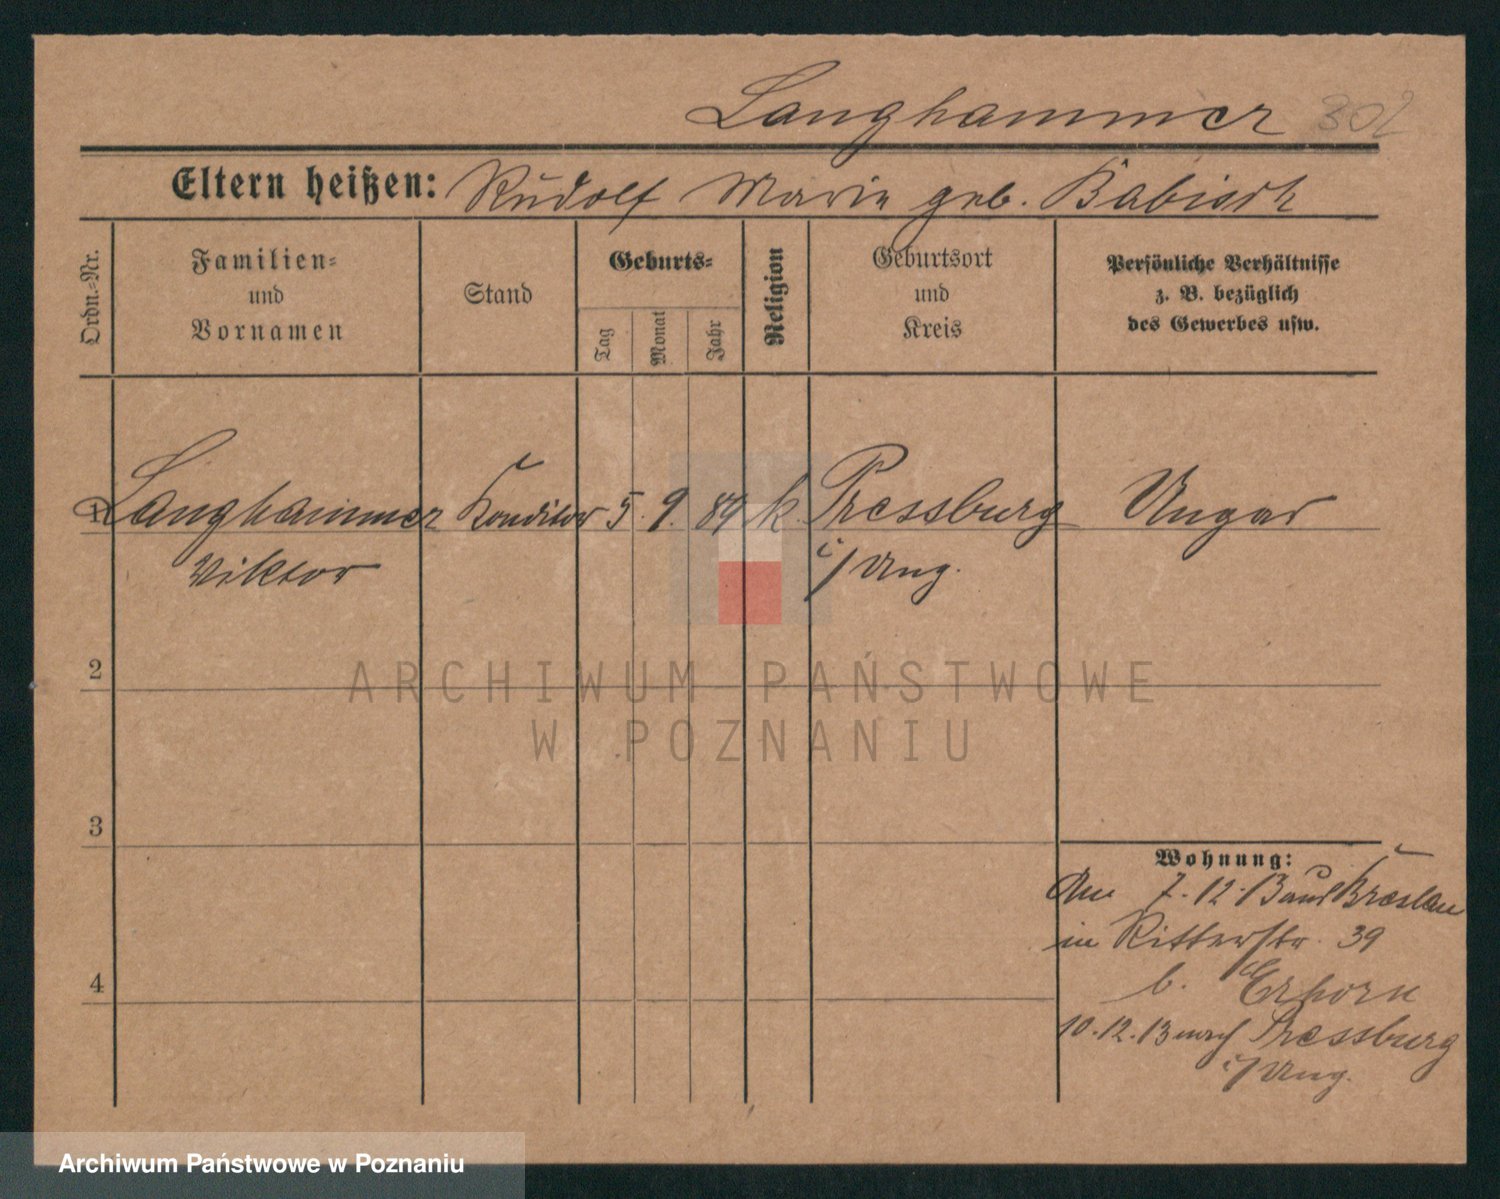 Langhammer 302
Eltern heißen: Rudolf Marie geb. Babisch
Ordn.-Nr.
Familien-
und
Vornamen
Stand
Geburts-
Tag
Monat
Jahr
Religion
Geburtsort
und
Kreis
Persönliche Verhältnisse
z. B. bezüglich
des Gewerbes usw.
1 Langhammer Konditor 5. 9. 89 k. Pressburg Ungar
Viktor i/Ung.
2
3
4
Wohnung:
Am 7.12.13 aus Breslau
in Ritterstr. 39
b.
10.12.13 nach Pressburg
i/Ung.
ARCHIWUM PAŃSTWOWE
W POZNANIU
Archiwum Państwowe w Poznaniu